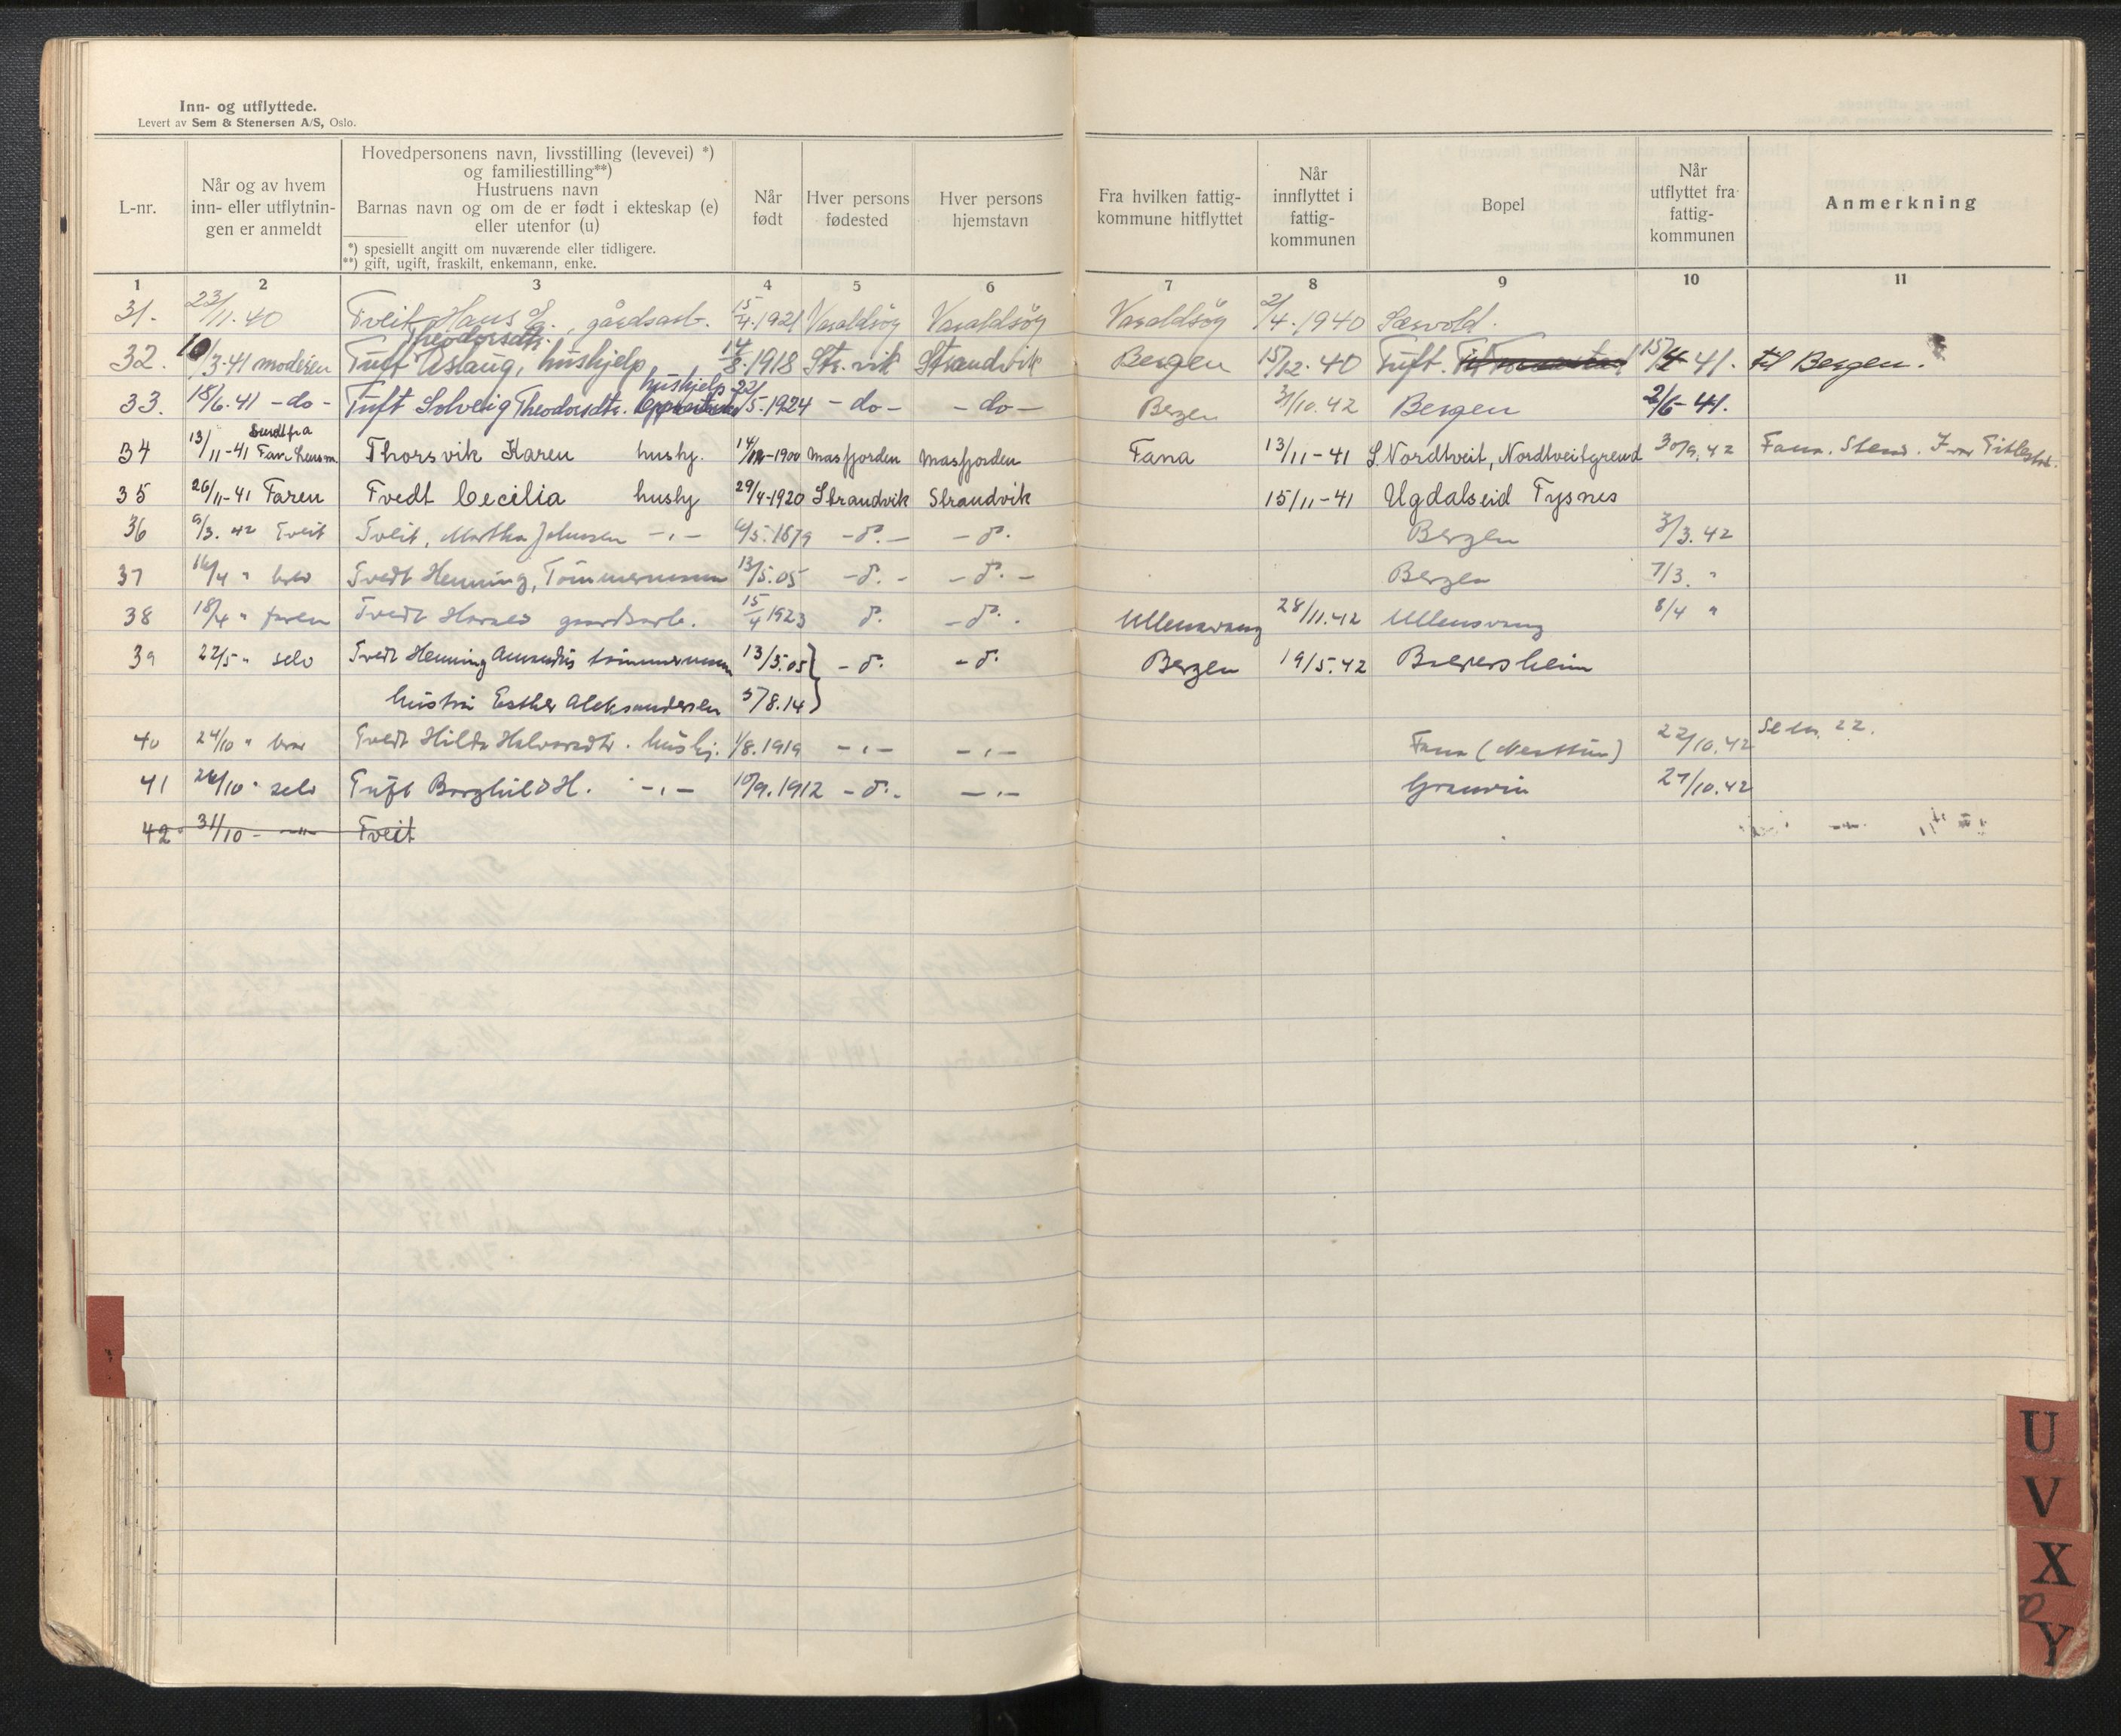 Inn- og utflyttede.
Levert av Sem & Stenersen A/S, Oslo.
L-nr.
Når og av hvem
inn- eller utflytnin-
gen er anmeldt
Hovedpersonens navn, livsstilling (levevei) *)
og familiestilling**)
Hustruens navn
Barnas navn og om de er født i ekteskap (e)
eller utenfor (u)
*) spesiellt angitt om nuværende eller tidligere.
**) gift, ugift, fraskilt, enkemann, enke.
Når
født
Hver persons
fødested
Hver persons
hjemstavn
Fra hvilken fattig-
kommune hitflyttet
Når
innflyttet i
fattig-
kommunen
Bopel
Når
utflyttet fra
fattig-
kommunen
Anmerkning
1 2 3 4 5 6 7 8 9 10 11
31. 23/11.40 Tveit Hans, gårdsarb. 15/4.1921 Varaldsøy Varaldsøy Varaldsøy 2/4.1940 Sævold.
Theodorsdtr.
32. 10/3.41 moderen Tuft Aslaug, hushjelp 14/8.1918 Str.vik Strandvik Bergen 15/12.40 Tuft. 15/4 41. til Bergen.
hushjelp
33. 18/6.41 -do- Tuft Solveig Theodorsdtr. 22/5.1924 -do- -do- Bergen 31/10.42 Bergen 2/6-41.
Sendt fra
34 13/11-41 Fana Lensm. Thorsvik Karen hushj. 14/12-1900 Masfjorden Masfjorden Fana 13/11-41 S. Nordtveit, Nordtveitgrend 30/9.42 Fana. Stend.
35 26/11-41 Faren Tvedt Cecilia hushj 29/4-1920 Strandvik Strandvik 15/11-41 Ugdalseid Tysnes
36 9/3.42 Tveit Tveit, Martha Johnsen -"- 6/5.1879 -d.- -d. Bergen 3/3.42
37 16/4 " Tvedt Henning, Tömmermann 13/5.05 -d.- -d.- Bergen 7/3. "
38 18/4 " faren Tvedt Harald gaardsarb. 15/4 1923 d. -d. Ullensvang 28/11.42 Ullensvang 8/4 "
39 22/5 " selv Tvedt Henning Amandus tömmermann 13/5.05 } -d. -d. Bergen 19/5.42
hustru Esther Aleksandersen 5/8.14 }
40 24/10 " Tvedt Hilda Halvorsdtr. hushj. 1/8.1919 -"- -"- Fana (Nesttun) 22/10.42
41 26/10 " selv Tuft Borghild H. -"- 10/9.1912 -d.- -"- Granvin 27/10.42
42 31/10 - -"- Tveit
U
V
X
Y